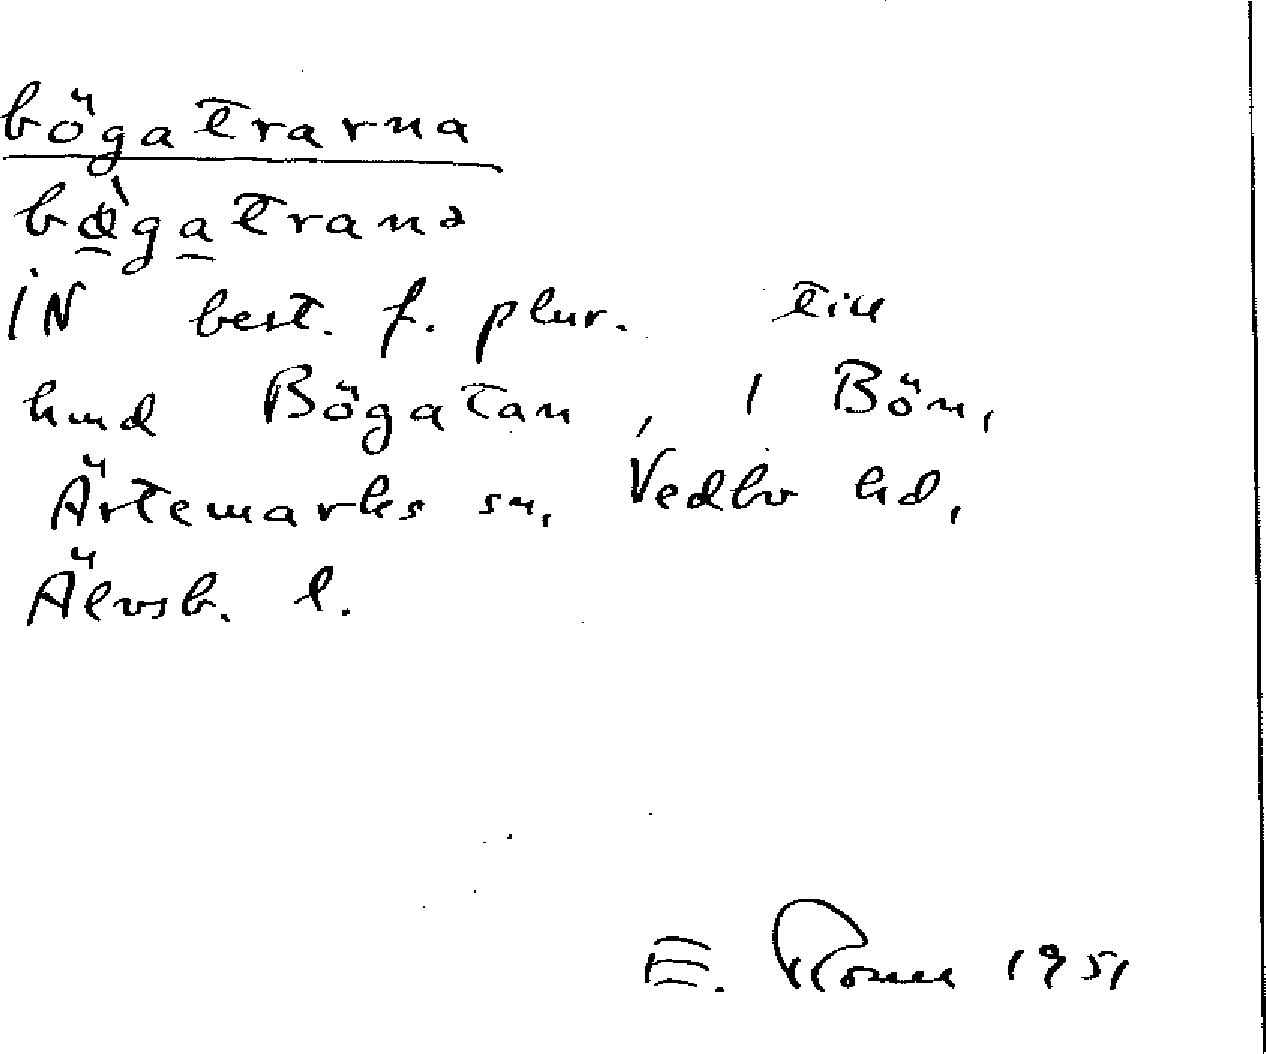 bögatrarna
bø̀gatranə
IN best. f. plur. till
hmd Bögatan, i Bön,
Ärtemarks sn, Vedbo hd,
Älvsb. l.
E. 1951